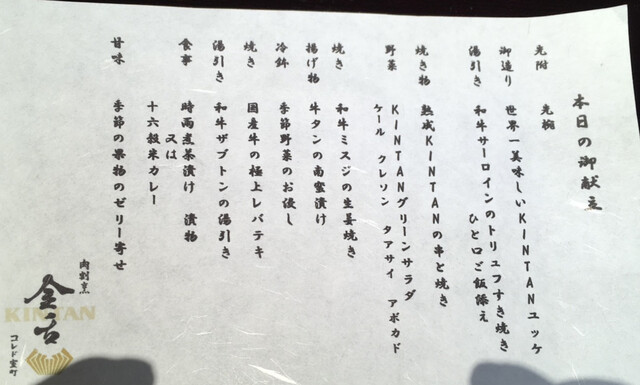 本日の御献立
先附 先椀
御造り 世界一美味しいKINTANユッケ
湯引き 和牛サーロインのトリュフすき焼き
ひと口ご飯添え
焼き物 熟成KINTANの串と焼き
野菜 KINTANグリーンサラダ
ケール クレソン タアサイ アボカド
焼き 和牛ミスジの生姜焼き
揚げ物 牛タンの南蛮漬け
冷鉢 季節野菜のお浸し
焼き 国産牛の極上レバテキ
湯引き 和牛ザブトンの湯引き
食事 時雨煮茶漬け 漬物
又は
十六穀米カレー
甘味 季節の果物のゼリー寄せ
肉割烹
KINTAN
金古
コレド室町